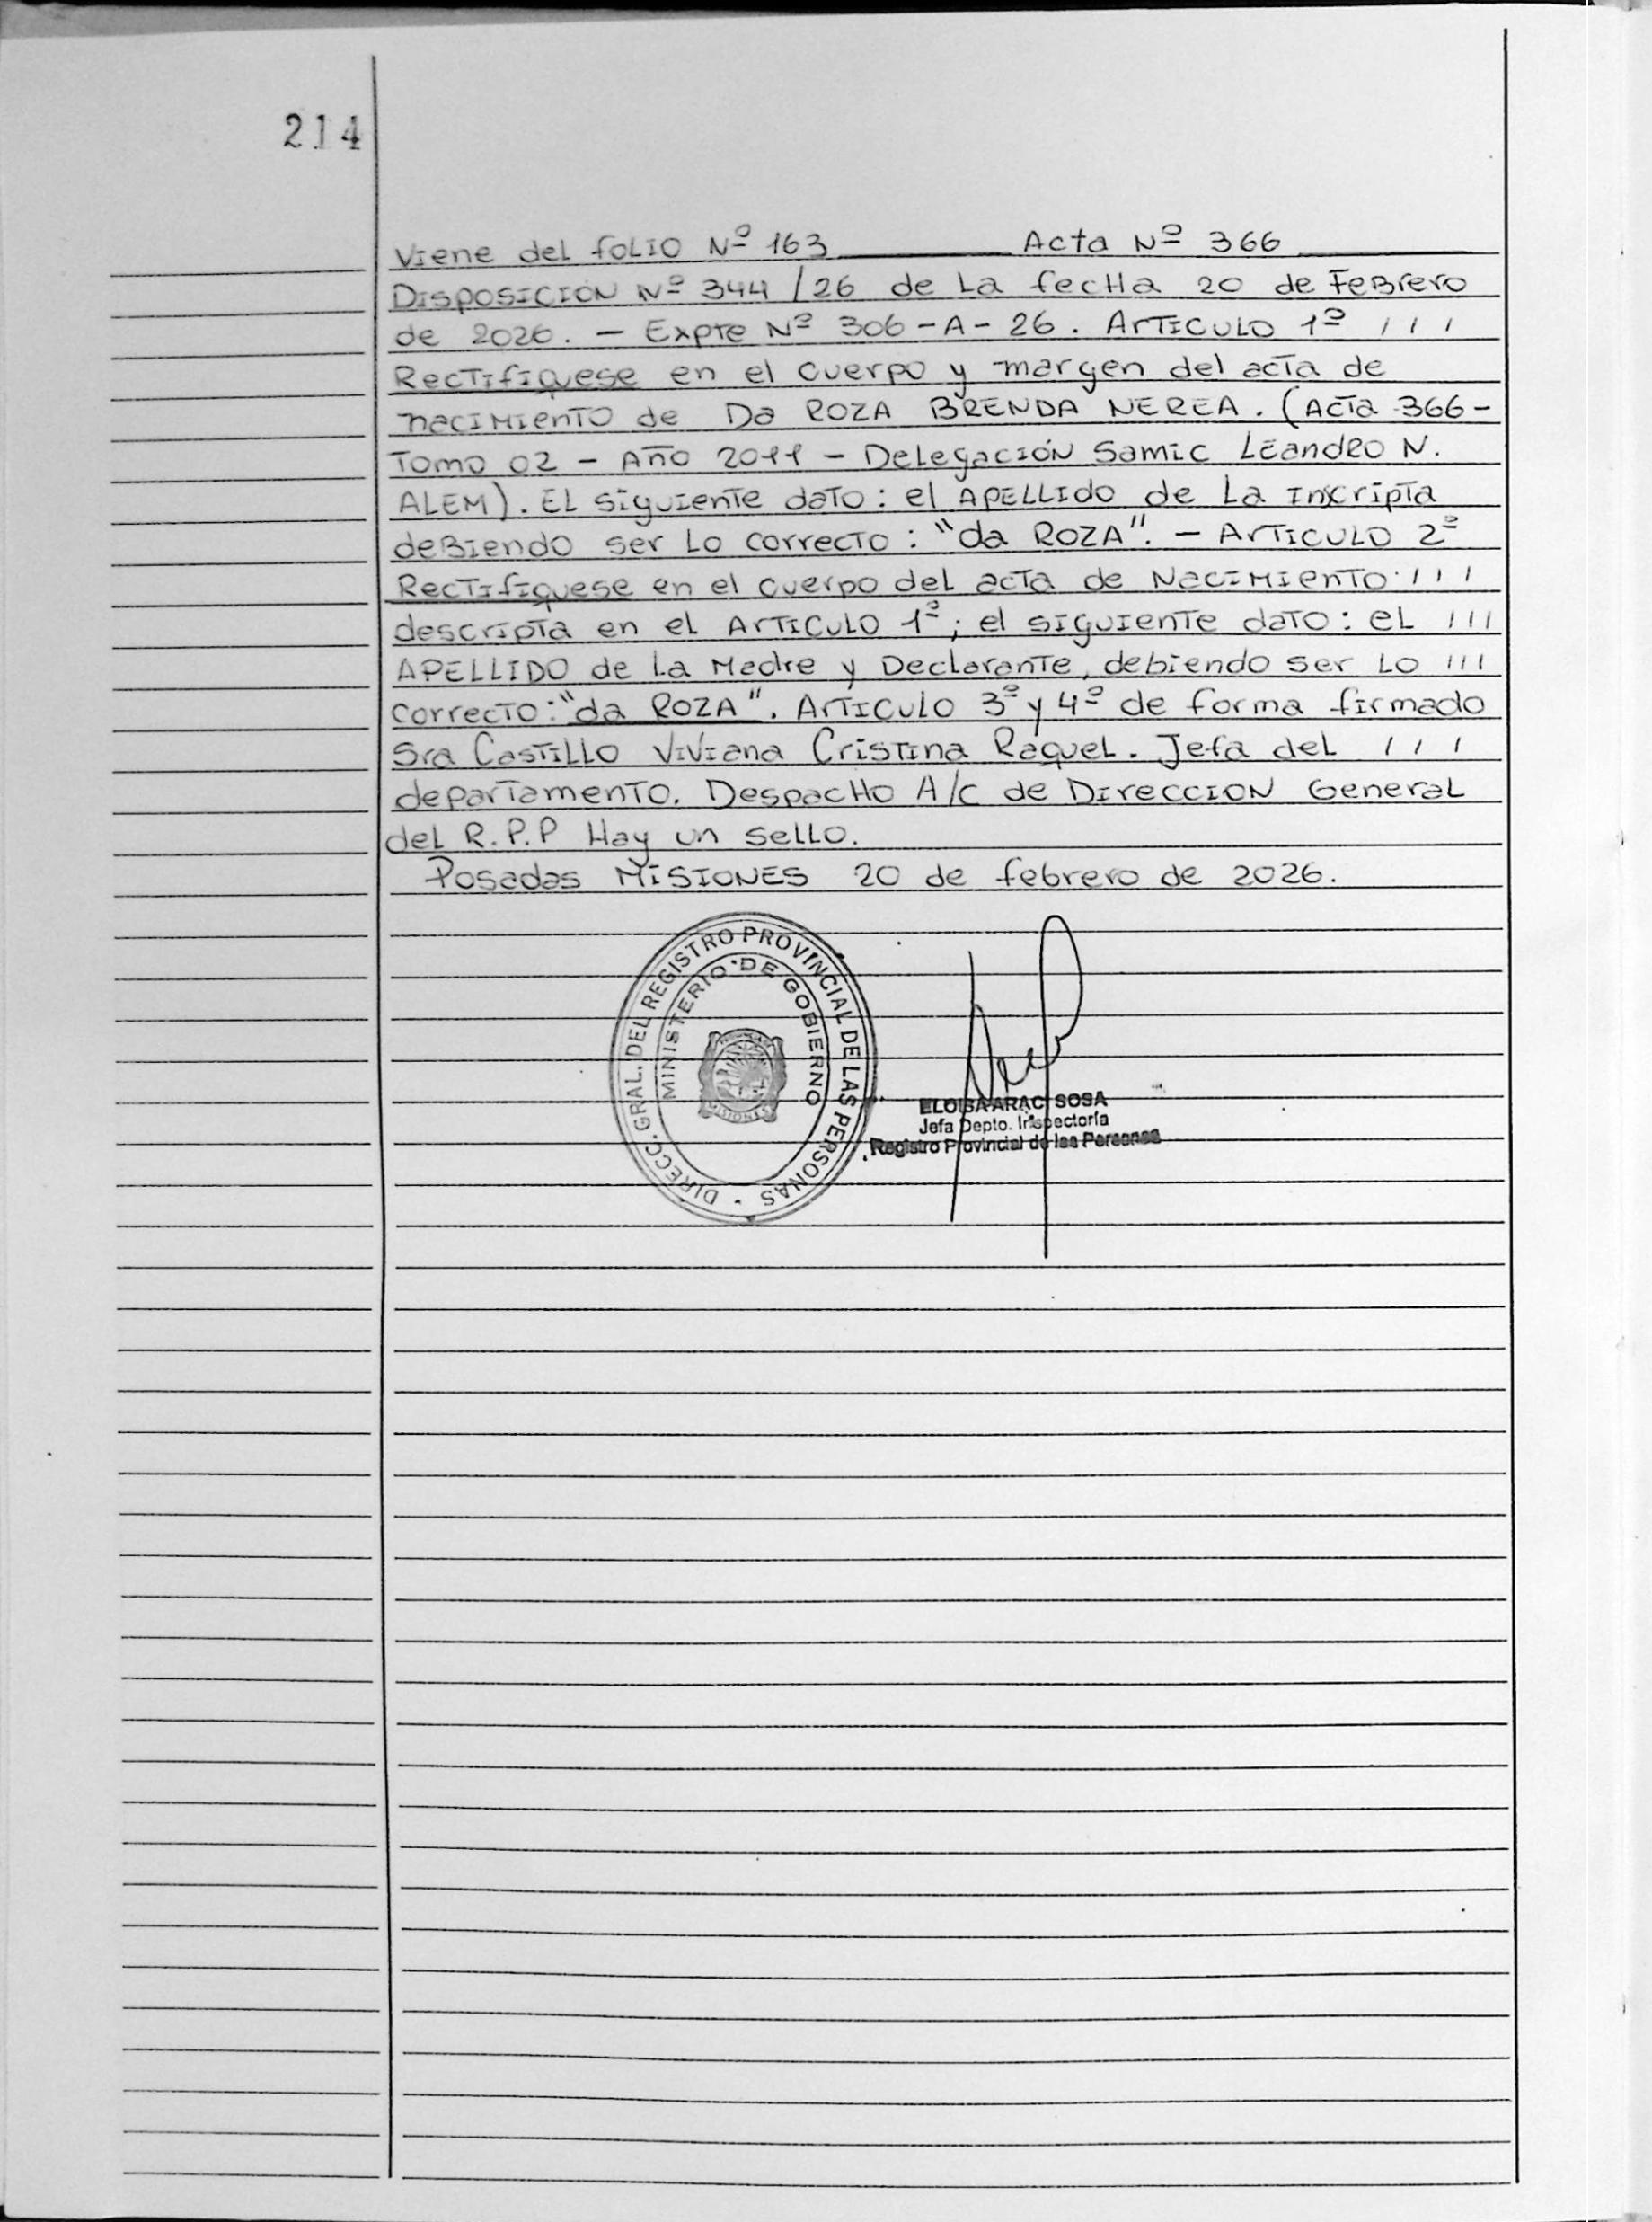 214
Viene del folio Nº 163 Acta Nº 366
Disposición Nº 344/26 de La fecHa 20 de FeBrero
de 2026. - Expte Nº 306-A-26. ArTICULO 1º ///
RecTifíquese en el cuerpo y margen del acTa de
naciMienTO de Da ROZA BRENDA NEREA. (AcTa 366-
Tomo 02 - Año 2011 - DeLegaCIÓN Samic LEandRO N.
ALEM). EL siguiente daTo: el APELLIdo de La Inscripta
deBiendo ser Lo correcTo: "da ROZA". - ArTICULO 2º
RecTifíquese en el cuerpo del acTa de NaciMienTO ///
descripTa en el ArTICULO 1º; el siguienTe daTo: eL ///
APELLIDO de La Madre y DeclaranTe, debiendo ser Lo ///
correcTo: "da ROZA". ArTICULO 3º y 4º de forma firmado
Sra CasTiLLo Viviana Cristina RaqueL. Jefa del ///
deparTamenTO. DespacHo A/c de DirecciON GeneraL
del R.P.P Hay un seLLo.
Posadas MISIONES 20 de febrero de 2026.
DIRECC. GRAL. DEL REGISTRO PROVINCIAL DE LAS PERSONAS
MINISTERIO DE GOBIERNO
MISIONES
ELOISA ARACI SOSA
Jefa Depto. Inspectoría
Registro Provincial de las Personas